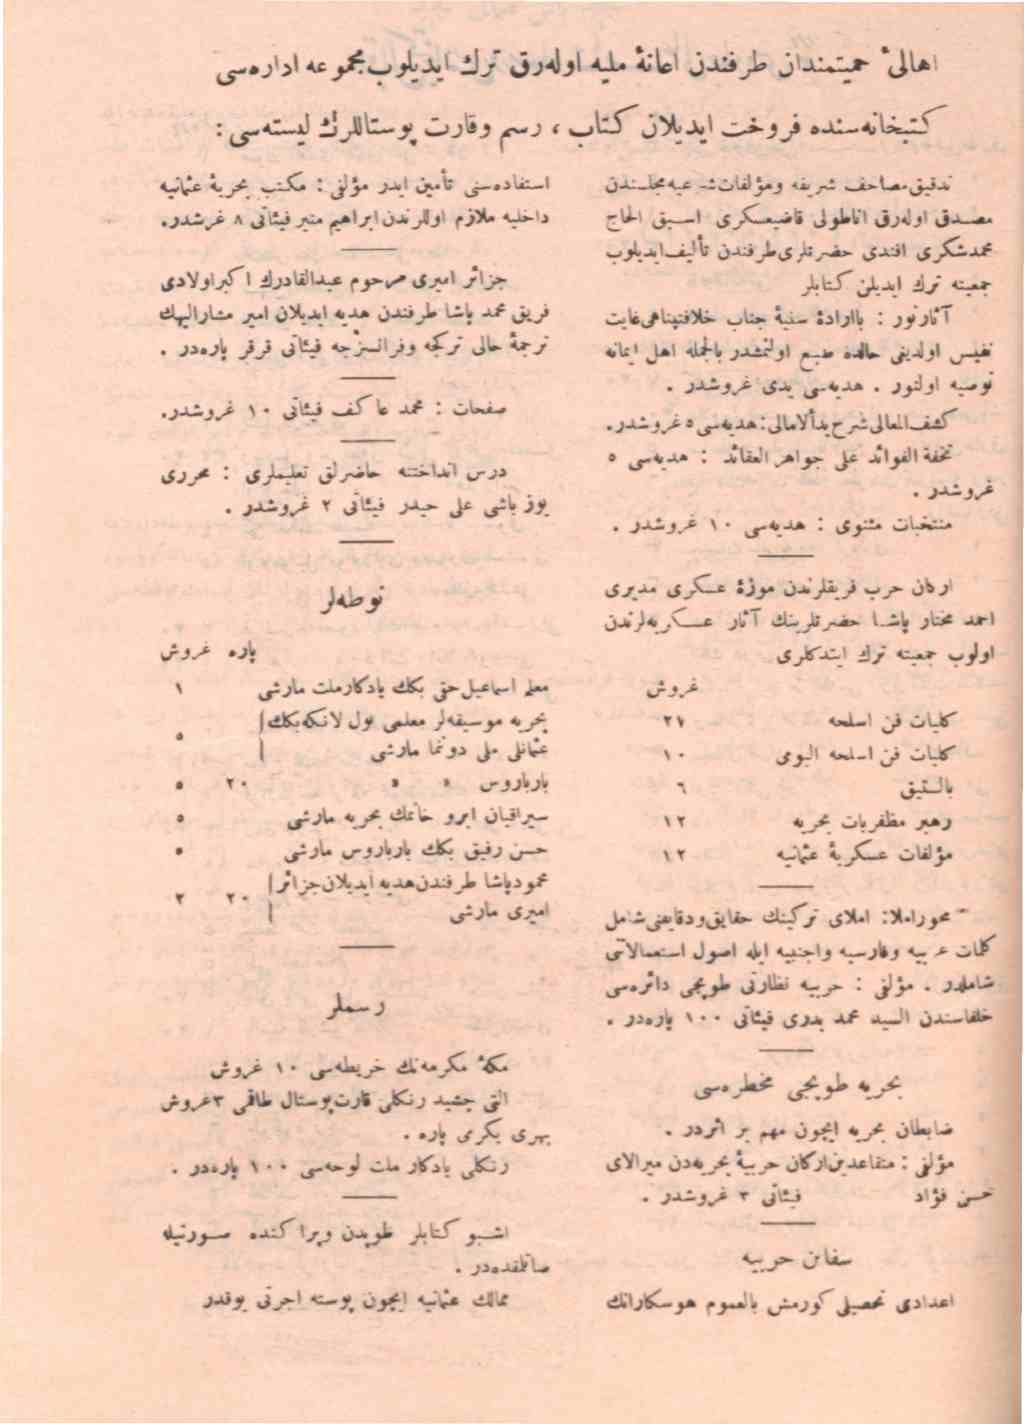 اهالئ حميتمندان طرفندن اعانهٔ مليه اوله‌رق ترك ايديلوب مجموعه اداره‌سى
كتبخانه‌سنده فروخت ايديلان كتاب ، رسم وقارت پوستاللرڭ ليسته‌سى :
تدقيق مصاحف شريفه ومؤلفات شرعيه مجلسندن
مصدق اوله‌رق اناطولى قاضيعسكرى اسبق الحاج
محمد شكرى افندى حضرتلرى طرفندن تأليف ايديلوب
جمعيته ترك ايديلن كتابلر
آثار نور : باارادهٔ سنيهٔ جناب خلافتپناهى غايت
نفيس اولديغى حالده طبع اولنمشدر بالجمله اهل ايمانه
توصيه اولنور . هديه‌سى يدى غروشدر .
كشف المعالى شرح بدأ الامالى : هديه‌سى ٥ غروشدر.
تحفة الفوائد على جواهر العقائد : هديه‌سى ٥
غروشدر .
منتخبات مثنوى : هديه‌سى ١٠ غروشدر .
اركان حرب فريقلرندن موزهٔ عسكرى مديرى
احمد مختار پاشا حضرتلرينك آثار عسكريه‌لرندن
اولوب جمعيته ترك ايتدكلرى
غروش
كليات فن اسلحه ٢٧
كليات فن اسلحه البومى ١٠
بالستيق ٦
رهبر مظفريات بحريه ١٢
مؤلفات عسكريهٔ عثمانيه ١٢
محور املا: املاى تركينك حقايق ودقايقنى شامل
كلمات عربيه وفارسيه واجنبيه ايله اصول استعمالاتى
شاملدر . مؤلفى : حربيه نظارتى طوپجى دائره‌سى
خلفاسندن السيد محمد بدرى فيئاتى ١٠٠ پاره‌در .
بحريه طوپجى مخطره‌سى
ضابطان بحريه ايچون مهم بر اثردر .
مؤلفى : متقاعدين اركان حربيهٔ بحريه‌دن ميرالاى
حسن فؤاد فيئاتى ٣ غروشدر .
سفائن حربيه
اعدادى تحصيلى كورمش بالعموم هوسكارانك
استفاده‌سنى تأمين ايدر مؤلفى : مكتب بحريهٔ عثمانيه
داخليه ملازم اوللرندن ابراهيم منير فيئاتى ٨ غرشدر.
جزائر اميرى مرحوم عبدالقادرك اكبر اولادى
فريق محمد پاشا طرفندن هديه ايديلان امير مشاراليهك
ترجمهٔ حالى تركجه وفرانسزجه فيئاتى قرقر پاره‌در .
صفحات : محمد عاكف فيئاتى ١٠ غروشدر.
درس انداختنه حاضرلق تعليملرى : محررى
يوزباشى على حيدر فيئاتى ٢ غروشدر .
نوطه‌لر
پاره غروش
معلم اسماعيل حقى بكك يادكار ملت مارشى ١
بحريه موسيقه‌لر معلمى پول لانكه بكك
عثمانلى ملى دونما مارشى ٥
بارباروس » » ٢٠ ٥
سيراقيان ابرو خانمك بحريه مارشى ٥
حسن رفيق بكك بارباروس مارشى ٥
محمود پاشا طرفندن هديه ايديلان جزائر
اميرى مارشى ٢٠ ٢
رسملر
مكهٔ مكرمه‌نك خريطه‌سى ١٠ غروش
التى چشيد رنكلى قارت پوستال طاقمى ٣ غروش
بهرى يكرمى پاره .
رنكلى يادكار ملت لوحه‌سى ١٠٠ پاره‌در .
اشبو كتابلر طوپدن وپراكنده صورتيله
صاتلقده‌در .
ممالك عثمانيه ايچون پوسته اجرتى يوقدر